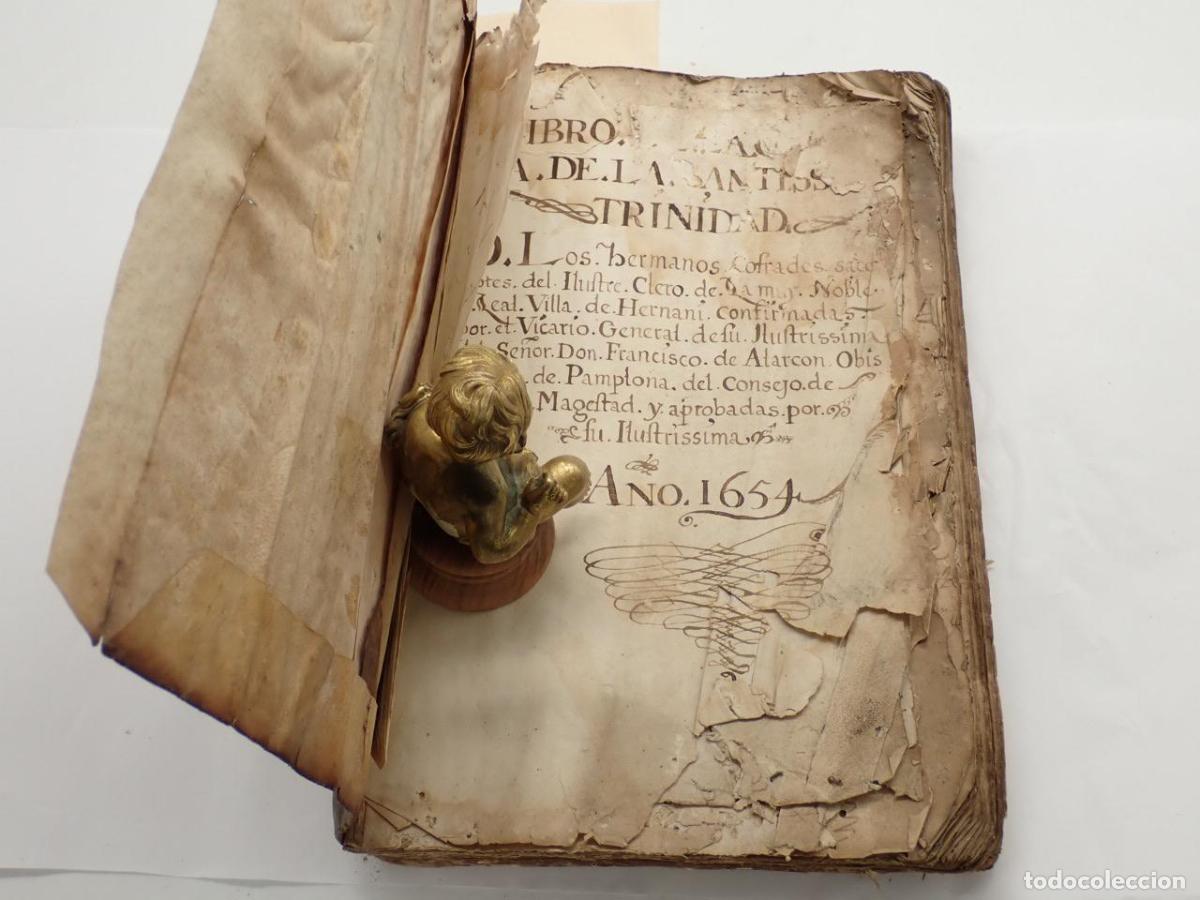 IBRO.
A. DE. LA. SANTISS
TRINIDAD.
D. Los. hermanos. Cofrades. sace
otes. del. Ilustre. Clero. de. La muy. Noble.
Real. Villa. de. Hernani. confirmadas.
por. el. Vicario. General. de su. Ilustrissima
Señor. Don. Francisco. de Alarcon. Obis
de. Pamplona. del. Consejo. de
Magestad. y. aprobadas. por.
su. Ilustrissima
AÑO. 1654
todocoleccion